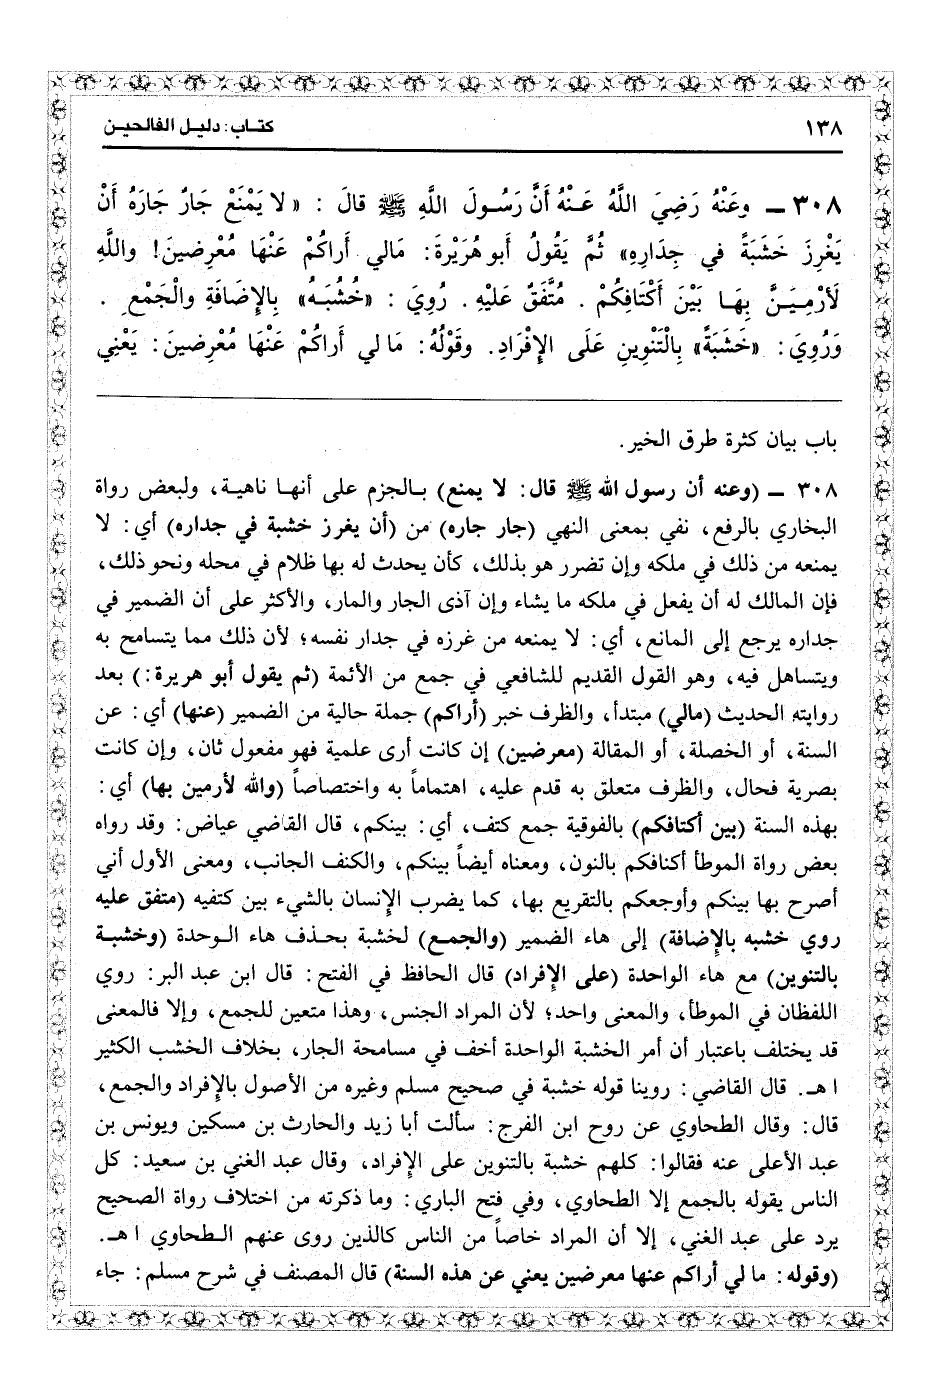 ١٣٨
كتاب: دليل الفالحين
٣٠٨ ـ وعَنْهُ رَضِيَ اللَّهُ عَنْهُ أَنَّ رَسُولَ اللَّهِ ﷺ قالَ : «لا يَمْنَعْ جَارٌ جَارَهُ أَنْ
يَغْرِزَ خَشَبَةً في جِدَارِهِ» ثُمَّ يَقُولُ أَبو هُرَيْرةَ: مَالي أَراكُمْ عَنْهَا مُعْرِضينَ! واللَّهِ
لَأرْمِيَنَّ بِهَا بَيْنَ أَكْتَافِكُمْ . مُتَّفَقٌ عَلَيْهِ. رُوِيَ : «خُشُبَهُ» بِالإِضَافَةِ والْجَمْعِ .
وَرُوِيَ : «خَشَبَةً» بِالْتَنْوِينِ عَلَى الإِفْرَادِ. وقَوْلُهُ: مَا لي أَراكُمْ عَنْهَا مُعْرِضينَ: يَعْنِي
باب بيان كثرة طرق الخير.
٣٠٨ ـ (وعنه أن رسول الله ﷺ قال: لا يمنع) بالجزم على أنها ناهية، ولبعض رواة
البخاري بالرفع، نفي بمعنى النهي (جار جاره) من (أن يغرز خشبة في جداره) أي: لا
يمنعه من ذلك في ملكه وإن تضرر هو بذلك، كأن يحدث له بها ظلام في محله ونحو ذلك،
فإن المالك له أن يفعل في ملكه ما يشاء وإن آذى الجار والمار، والأكثر على أن الضمير في
جداره يرجع إلى المانع، أي: لا يمنعه من غرزه في جدار نفسه؛ لأن ذلك مما يتسامح به
ويتساهل فيه، وهو القول القديم للشافعي في جمع من الأئمة (ثم يقول أبو هريرة:) بعد
روايته الحديث (مالي) مبتدأ، والظرف خبر (أراكم) جملة حالية من الضمير (عنها) أي: عن
السنة، أو الخصلة، أو المقالة (معرضين) إن كانت أرى علمية فهو مفعول ثان، وإن كانت
بصرية فحال، والظرف متعلق به قدم عليه، اهتماماً به واختصاصاً (والله لأرمين بها) أي:
بهذه السنة (بين أكتافكم) بالفوقية جمع كتف، أي: بينكم، قال القاضي عياض: وقد رواه
بعض رواة الموطأ أكنافكم بالنون، ومعناه أيضاً بينكم، والكنف الجانب، ومعنى الأول أني
أصرح بها بينكم وأوجعكم بالتقريع بها، كما يضرب الإنسان بالشيء بين كتفيه (متفق عليه
روي خشبه بالإضافة) إلى هاء الضمير (والجمع) لخشبة بحذف هاء الوحدة (وخشبة
بالتنوين) مع هاء الواحدة (على الإفراد) قال الحافظ في الفتح: قال ابن عبد البر: روي
اللفظان في الموطأ، والمعنى واحد؛ لأن المراد الجنس، وهذا متعين للجمع، وإلا فالمعنى
قد يختلف باعتبار أن أمر الخشبة الواحدة أخف في مسامحة الجار، بخلاف الخشب الكثير
ا هـ. قال القاضي: روينا قوله خشبة في صحيح مسلم وغيره من الأصول بالإفراد والجمع،
قال: وقال الطحاوي عن روح ابن الفرج: سألت أبا زيد والحارث بن مسكين ويونس بن
عبد الأعلى عنه فقالوا: كلهم خشبة بالتنوين على الإفراد، وقال عبد الغني بن سعيد: كل
الناس يقوله بالجمع إلا الطحاوي، وفي فتح الباري: وما ذكرته من اختلاف رواة الصحيح
يرد على عبد الغني، إلا أن المراد خاصاً من الناس كالذين روى عنهم الطحاوي ا هـ.
(وقوله: ما لي أراكم عنها معرضين يعني عن هذه السنة) قال المصنف في شرح مسلم: جاء